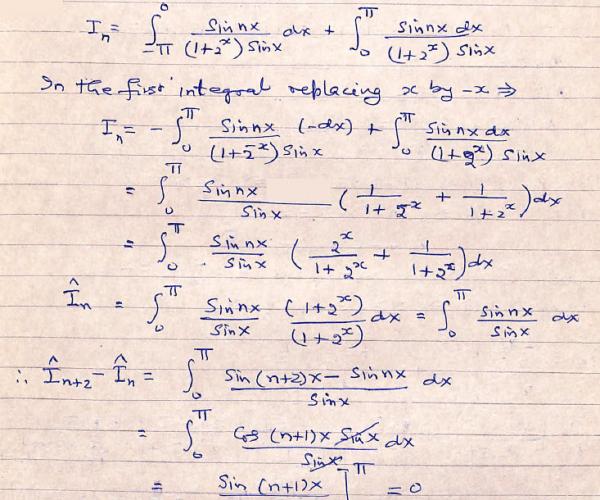 Iₙ = ∫_{-π}^{0} sin nx / (1+2ˣ) sin x dx + ∫_{0}^{π} sin nx dx / (1+2ˣ) sin x
In the first integral replacing x by -x ⇒
Iₙ = - ∫_{0}^{π} sin nx / (1+2⁻ˣ) sin x (-dx) + ∫_{0}^{π} sin nx dx / (1+2ˣ) sin x
= ∫_{0}^{π} sin nx / sin x ( 1 / 1+2⁻ˣ + 1 / 1+2ˣ ) dx
= ∫_{0}^{π} sin nx / sin x ( 2ˣ / 1+2ˣ + 1 / 1+2ˣ ) dx
Îₙ = ∫_{0}^{π} sin nx / sin x (1+2ˣ) / (1+2ˣ) dx = ∫_{0}^{π} sin nx / sin x dx
∴ Îₙ₊₂ - Îₙ = ∫_{0}^{π} sin (n+2)x - sin nx / sin x dx
= ∫_{0}^{π} cos (n+1)x sin x / sin x dx
= sin (n+1)x ]^{π} = 0